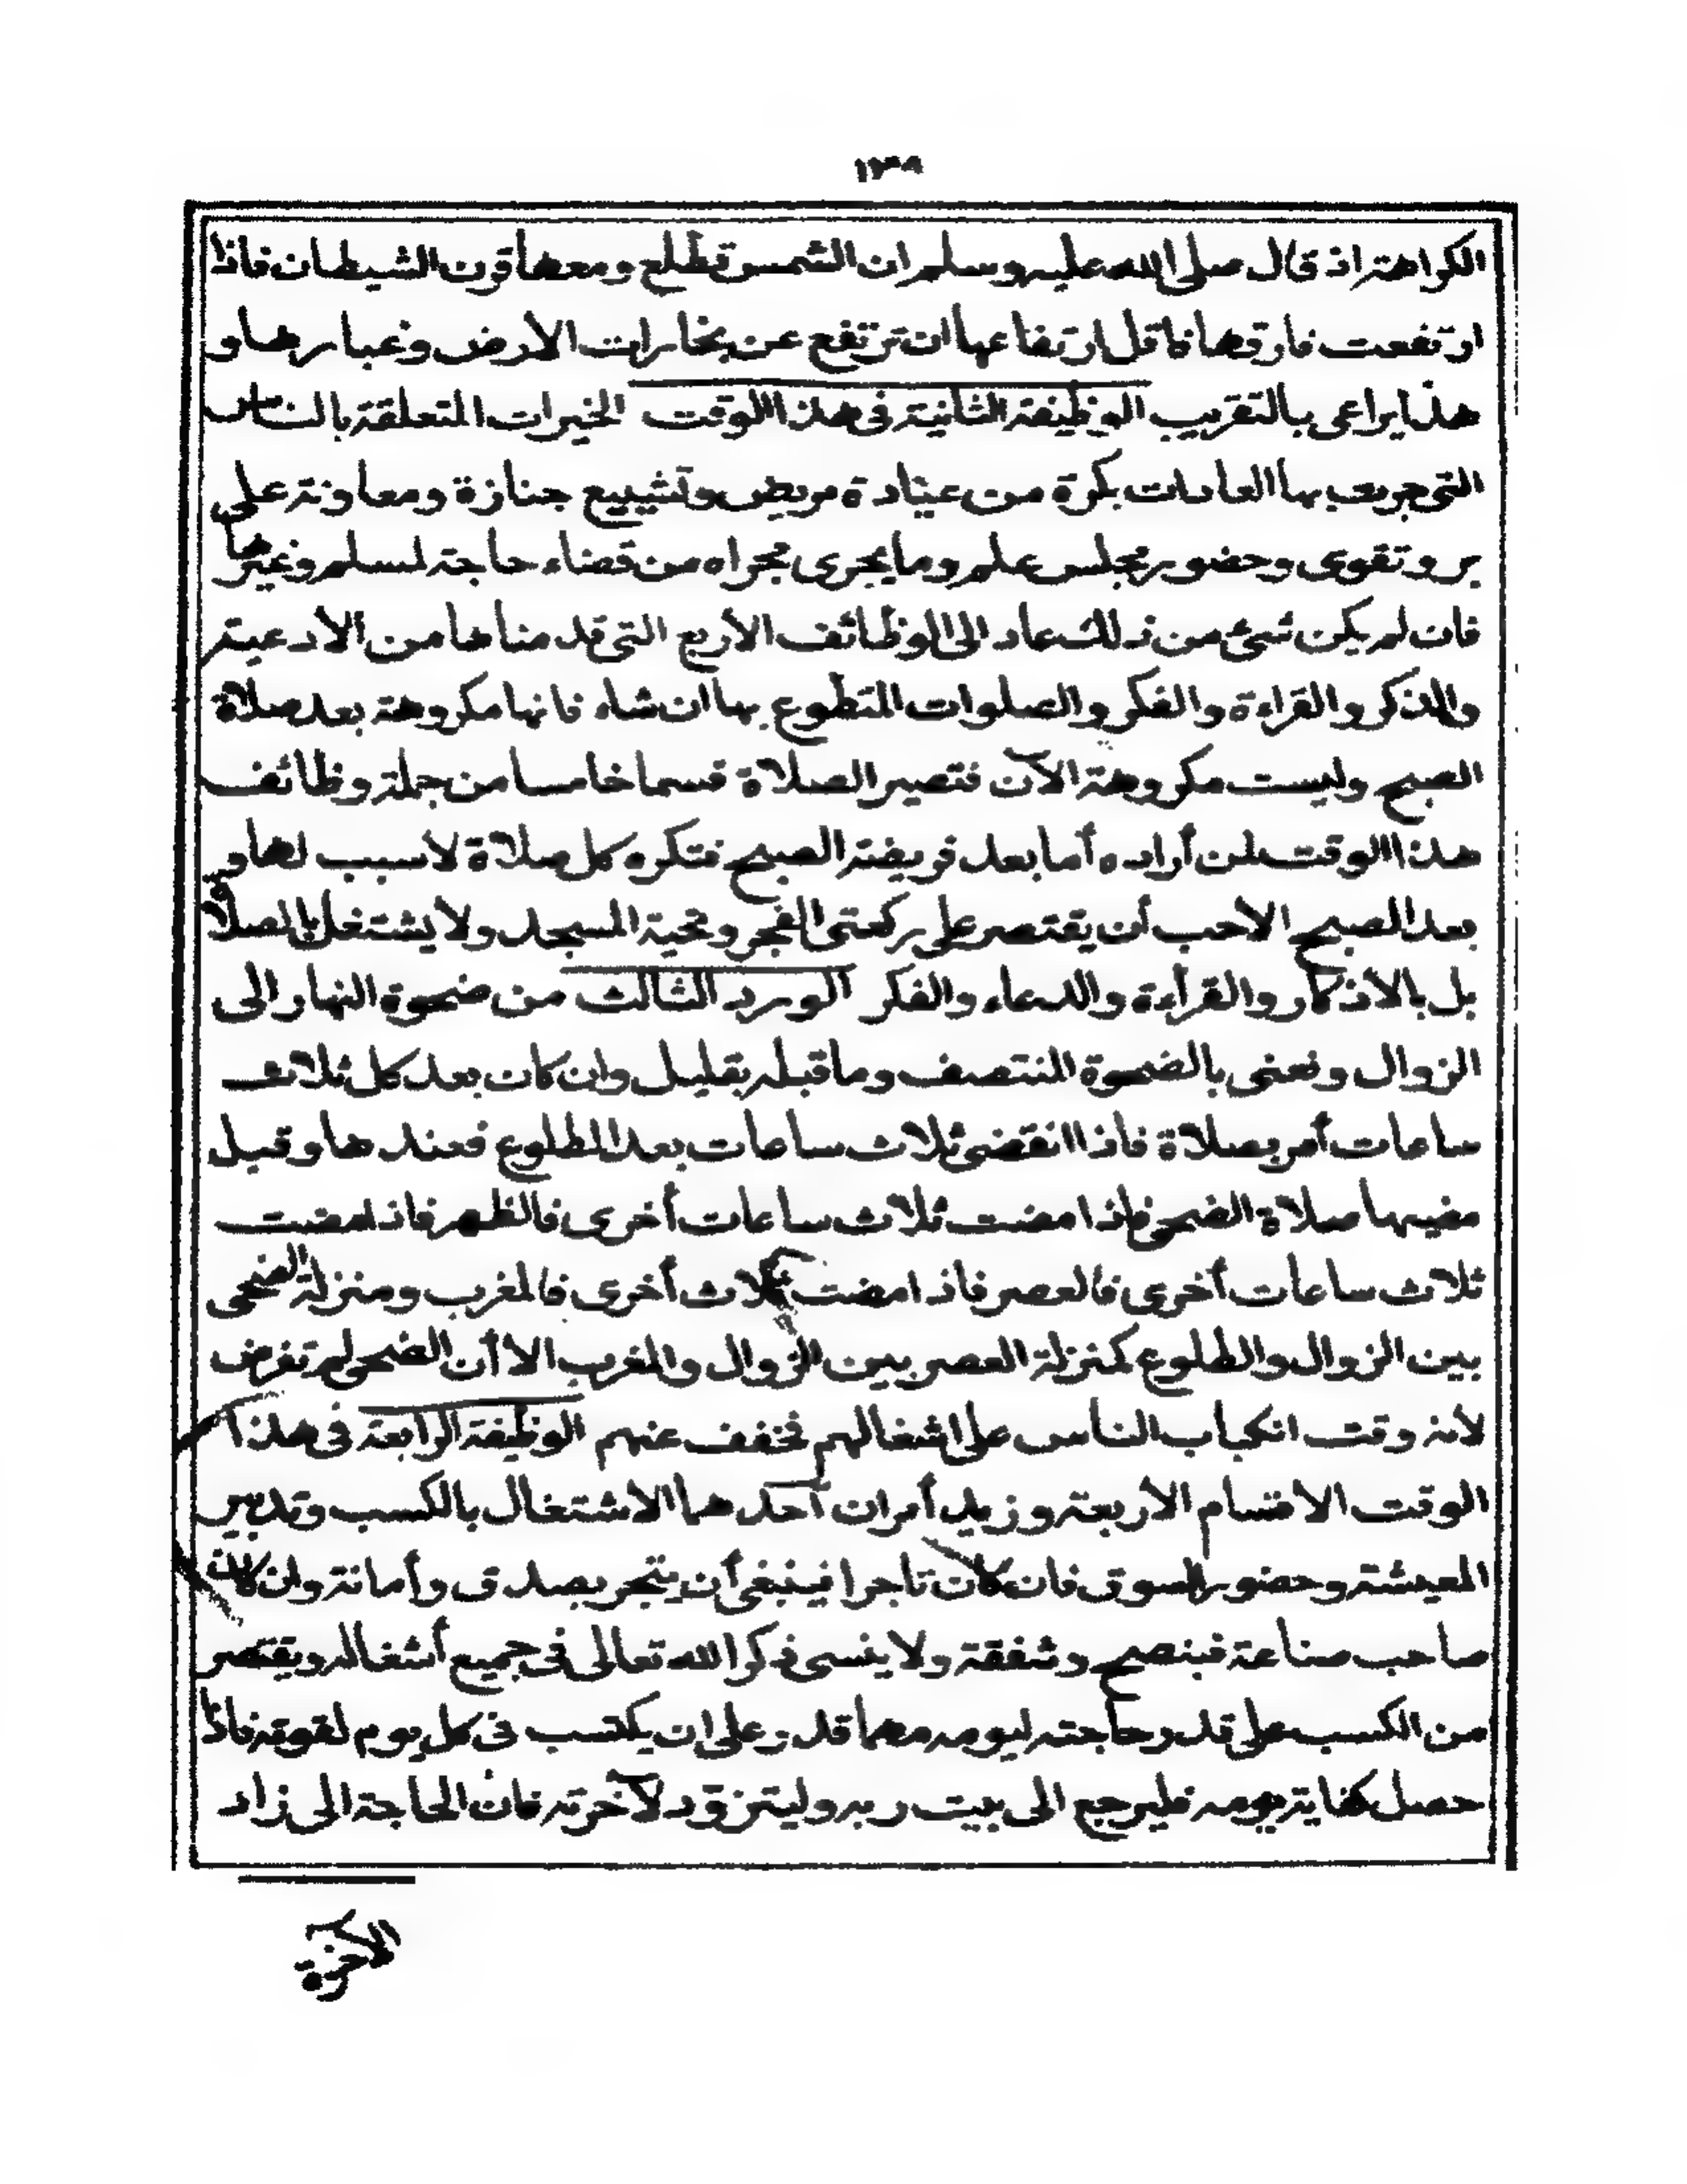 ١٣٩
الكراهة اذ قال صلى الله عليه وسلم ان الشمس تطلع ومعها قرن الشيطان فاذا
ارتفعت فارقها فاقل ارتفاعها ان ترتفع عن بخارات الارض وغبارها و
هذا يراعى بالتقريب الوظيفة الثانية فى هذا الوقت الخيرات المتعلقة بالناس
التى جرت بها العادات بكرة من عيادة مريض وتشييع جنازة ومعاونة على
بر وتقوى وحضور مجلس علم وما يجرى مجراه من قضاء حاجة لمسلم وغيرها
فان لم يكن شىء من ذلك عاد الى الوظائف الأربع التى قدمناها من الأدعية
والذكر والقراءة والفكر والصلوات المتطوع بها ان شاء فانها مكروهة بعد صلاة
الصبح وليست مكروهة الآن فتصير الصلاة قسما خامسا من جملة وظائف
هذا الوقت لمن أراده أما بعد فريضة الصبح فتكره كل صلاة لا سبب لها و
بعد الصبح الأحب أن يقتصر على ركعتى الفجر وتحية المسجد ولا يشتغل بالصلاة
بل بالأذكار والقرأءة والدعاء والفكر الورد الثالث من ضحوة النهار الى
الزوال ونعنى بالضحوة المنتصف وما قبله بقليل وان كان بعد كل ثلاث
ساعات أمر بصلاة فاذا انقضى ثلاث ساعات بعد الطلوع فعندها وقبل
مضيها صلاة الضحى فاذا مضت ثلاث ساعات أخرى فالظهر فاذا مضت
ثلاث ساعات أخرى فالعصر فاذا مضت ثلاث أخرى فالمغرب ومنزلة الضحى
بين الزوال والطلوع كمنزلة العصر بين الزوال والمغرب الا أن الضحى لم تفرض
لأنه وقت انكباب الناس على اشغالهم فخفف عنهم الوظيفة الرابعة فى هذا
الوقت الاقسام الأربعة وزيد أمران أحدهما الاشتغال بالكسب وتدبير
المعيشة وحضور السوق فان كان تاجرا فينبغى أن يتجر بصدق وأمانة وان كان
صاحب صناعة فبنصح وشفقة ولا ينسى ذكر الله تعالى فى جميع أشغاله ويقتصر
من الكسب على قدر حاجته ليومه مهما قدر على ان يكتسب فى كل يوم لقوته فاذا
حصل كفاية يومه فليرجع الى بيت ربه وليتزود لآخرته فان الحاجة الى زاد
الآخرة